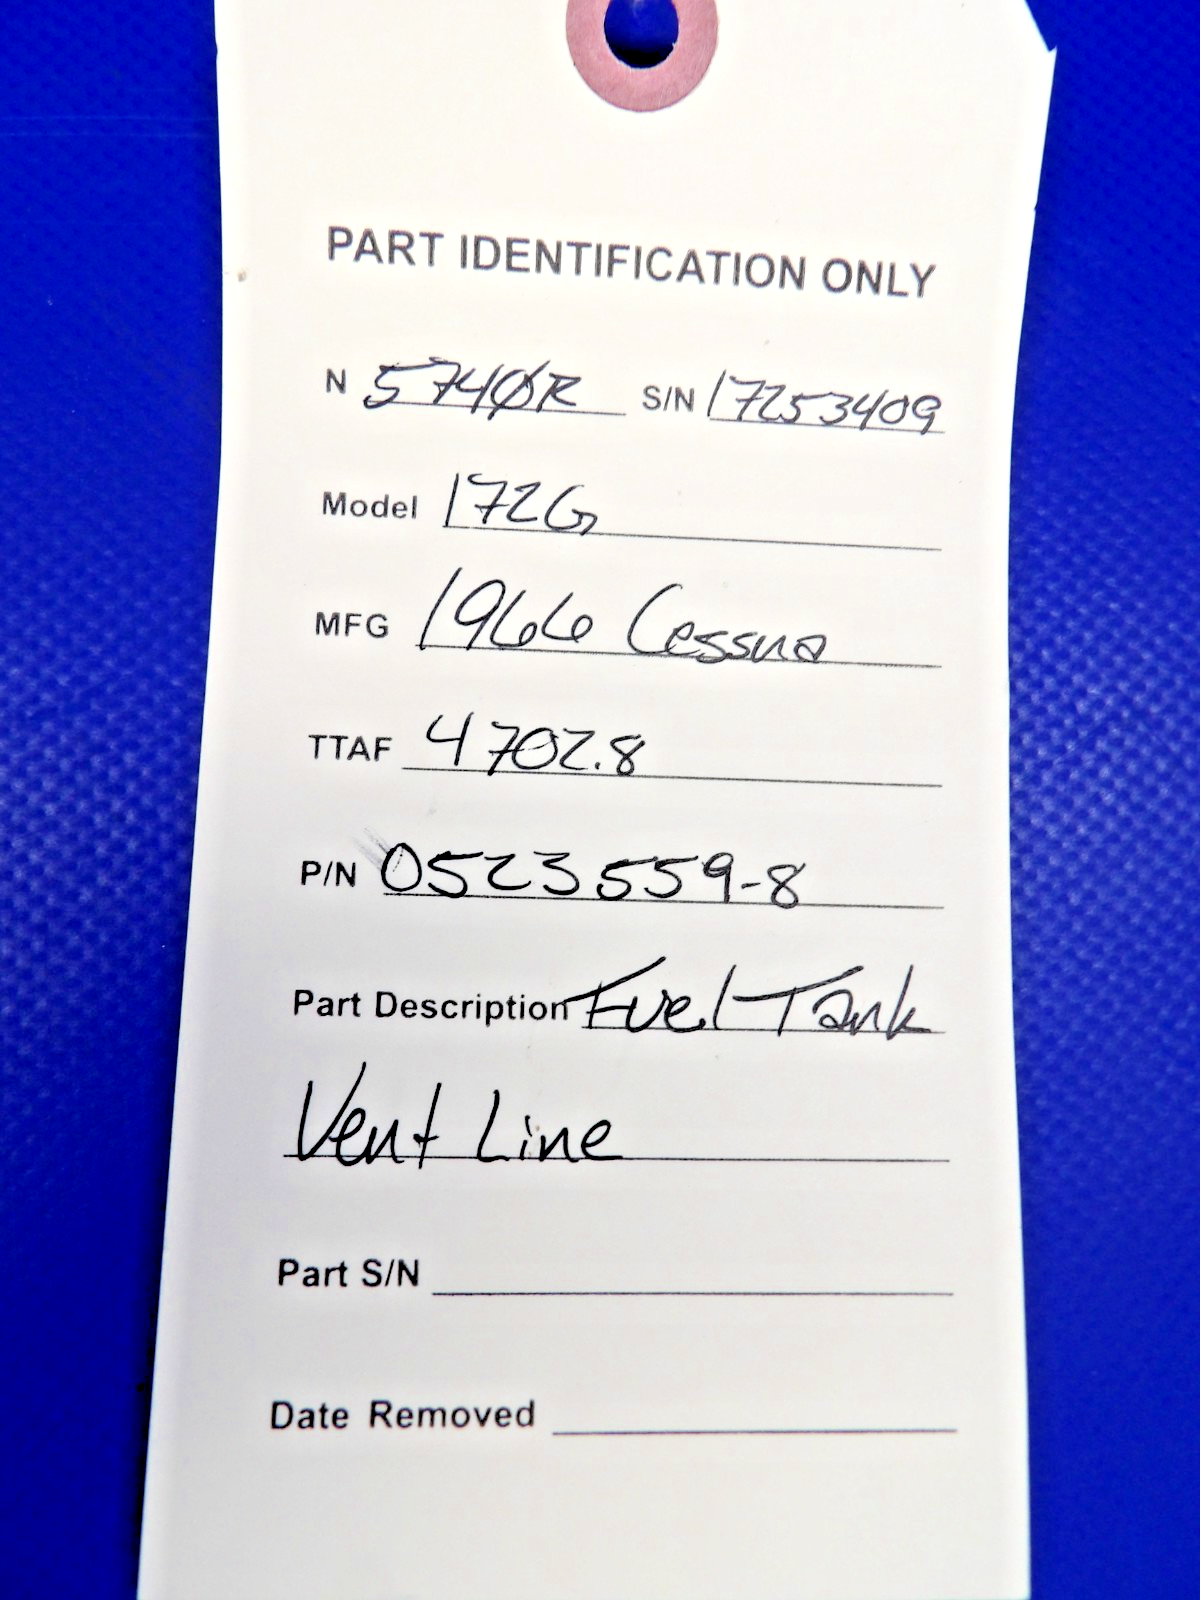 PART IDENTIFICATION ONLY
N 5740R S/N 17253409
Model 172G
MFG 1966 Cessna
TTAF 4702.8
P/N 0523559-8
Part Description Fuel Tank
Vent Line
Part S/N
Date Removed